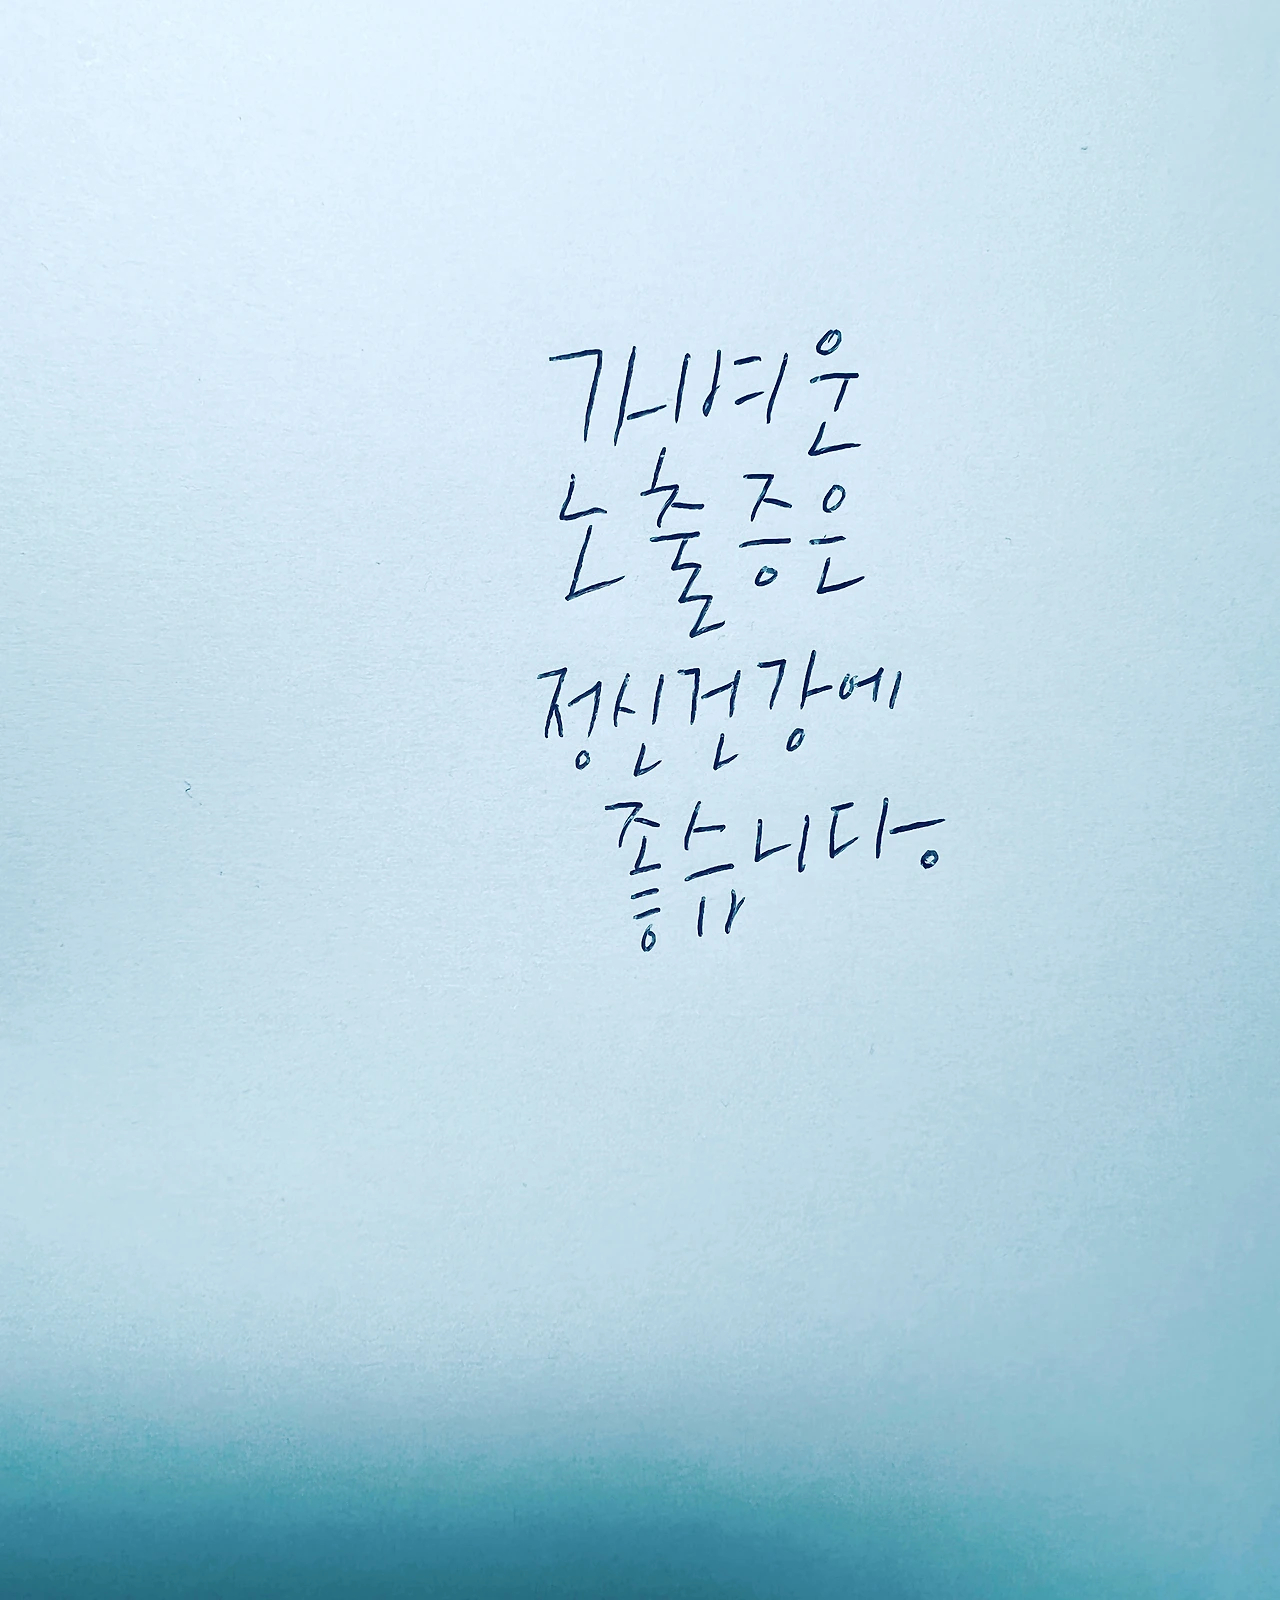 가벼운
노출증은
정신건강에
좋습니다.